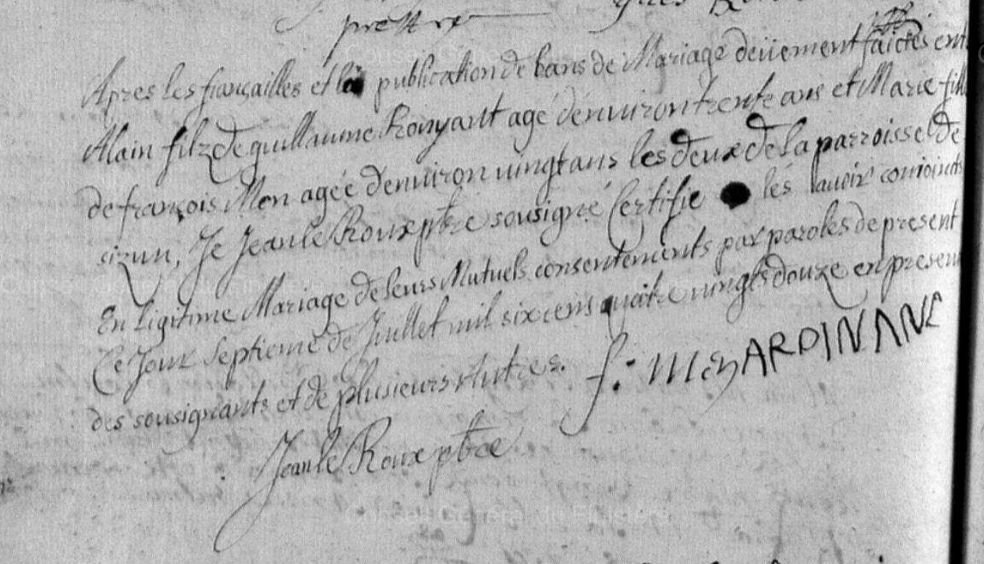 prettre
Apres les françailles et la publication de bans de Mariage deüement faictes ent
Alain filz de guillaume Rouyant agé denviron trente ans et Marie fill
de françois Men agée denviron vingt ans les deux de la parroisse de
sizun, Je Jean le Roux pbre sousigné Certifie les avoir conioincts
En Ligitime Mariage de leurs Mutuels consentements par paroles de present
Ce Jour septieme de Juillet mil six cens quatre vingts douze en presen
des sousignants et de plusieurs Autres. f: MENARDINANT
Jean le Roux pbre